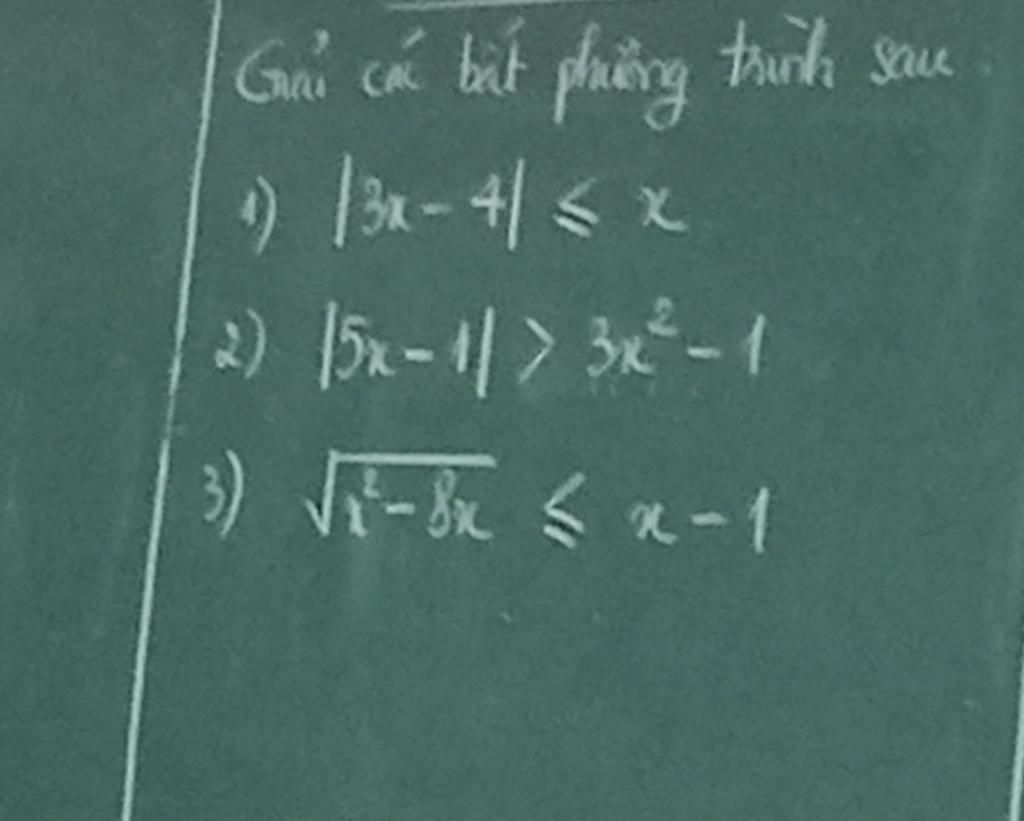 Giải các bất phương trình sau
1) |3x - 4| ≤ x
2) |5x - 1| > 3x² - 1
3) √(x² - 8x) ≤ x - 1